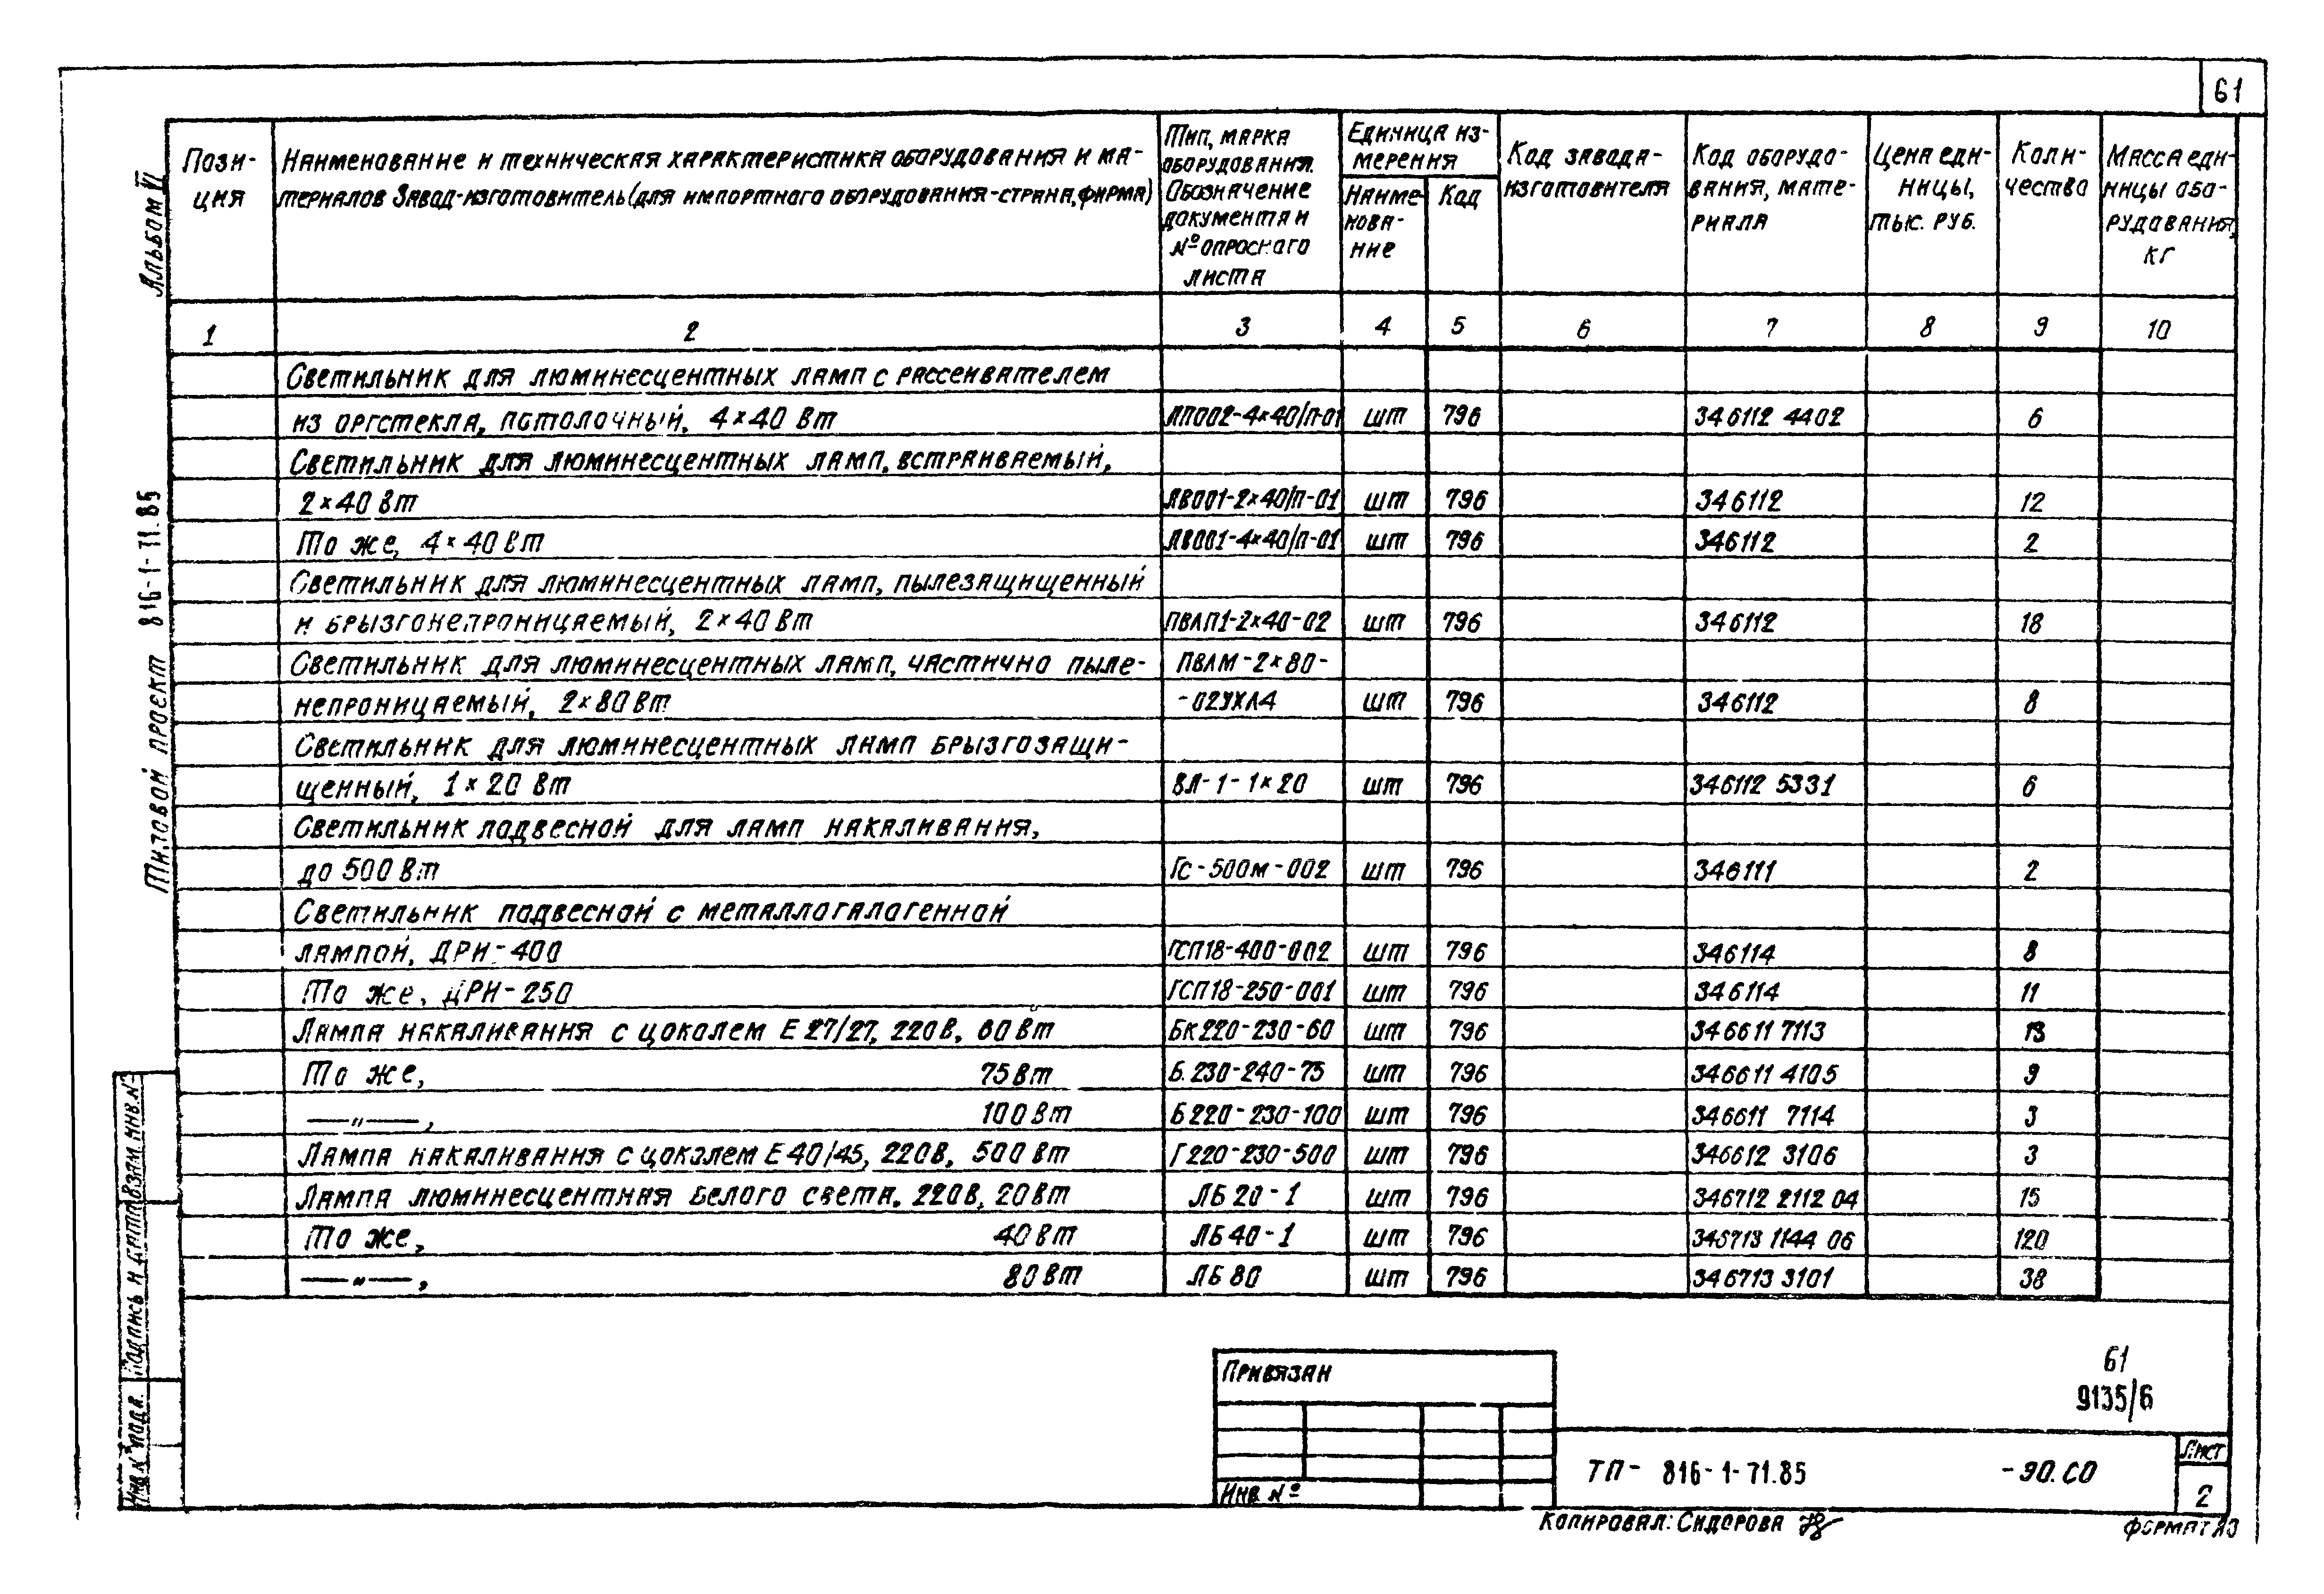 61
Альбом VI
Типовой проект 816-1-71.85
Пози-
ция
Наименование и техническая характеристика оборудования и ма-
териалов Завод-изготовитель (для импортного оборудования-страна, фирма)
Тип, марка
оборудования.
Обозначение
документа и
№ опросного
листа
Единица из-
мерения
Наиме-
нова-
ние
Код
Код завода-
изготовителя
Код оборудо-
вания, мате-
риала
Цена еди-
ницы,
тыс. руб.
Коли-
чество
Масса еди-
ницы обо-
рудования,
кг
1 2 3 4 5 6 7 8 9 10
Светильник для люминесцентных ламп с рассеивателем
из оргстекла, потолочный, 4×40 Вт ЛПО02-4×40/П-01 шт 796 346112 4402 6
Светильник для люминесцентных ламп, встраиваемый,
2×40 Вт ЛВ001-2×40/П-01 шт 796 346112 12
То же, 4×40 Вт ЛВ001-4×40/П-01 шт 796 346112 2
Светильник для люминесцентных ламп, пылезащищенный
и брызгонепроницаемый, 2×40 Вт ПВЛП1-2×40-02 шт 796 346112 18
Светильник для люминесцентных ламп, частично пыле- ПВЛМ-2×80-
непроницаемый, 2×80 Вт -02УХЛ4 шт 796 346112 8
Светильник для люминесцентных ламп брызгозащи-
щенный, 1×20 Вт ВЛ-1-1×20 шт 796 346112 5331 6
Светильник подвесной для ламп накаливания,
до 500 Вт ГС-500м-002 шт 796 346111 2
Светильник подвесной с металлогалогенной
лампой, ДРИ-400 ГСП18-400-002 шт 796 346114 8
То же, ДРИ-250 ГСП18-250-001 шт 796 346114 11
Лампа накаливания с цоколем Е 27/27, 220 В, 60 Вт БК220-230-60 шт 796 346611 7113 13
То же, 75 Вт Б.230-240-75 шт 796 346611 4105 9
—"—, 100 Вт Б220-230-100 шт 796 346611 7114 3
Лампа накаливания с цоколем Е 40/45, 220 В, 500 Вт Г220-230-500 шт 796 346612 3106 3
Лампа люминесцентная белого света, 220 В, 20 Вт ЛБ 20-1 шт 796 346712 2112 04 15
То же, 40 Вт ЛБ 40-1 шт 796 346713 1144 06 120
—"—, 80 Вт ЛБ 80 шт 796 346713 3101 38
Взам. инв. №
Подпись и дата
Инв. № подл.
Привязан
Инв №
61
9135/6
ТП- 816-1-71.85 -90.СО
Лист
2
Копировал: Сидорова
Формат А3